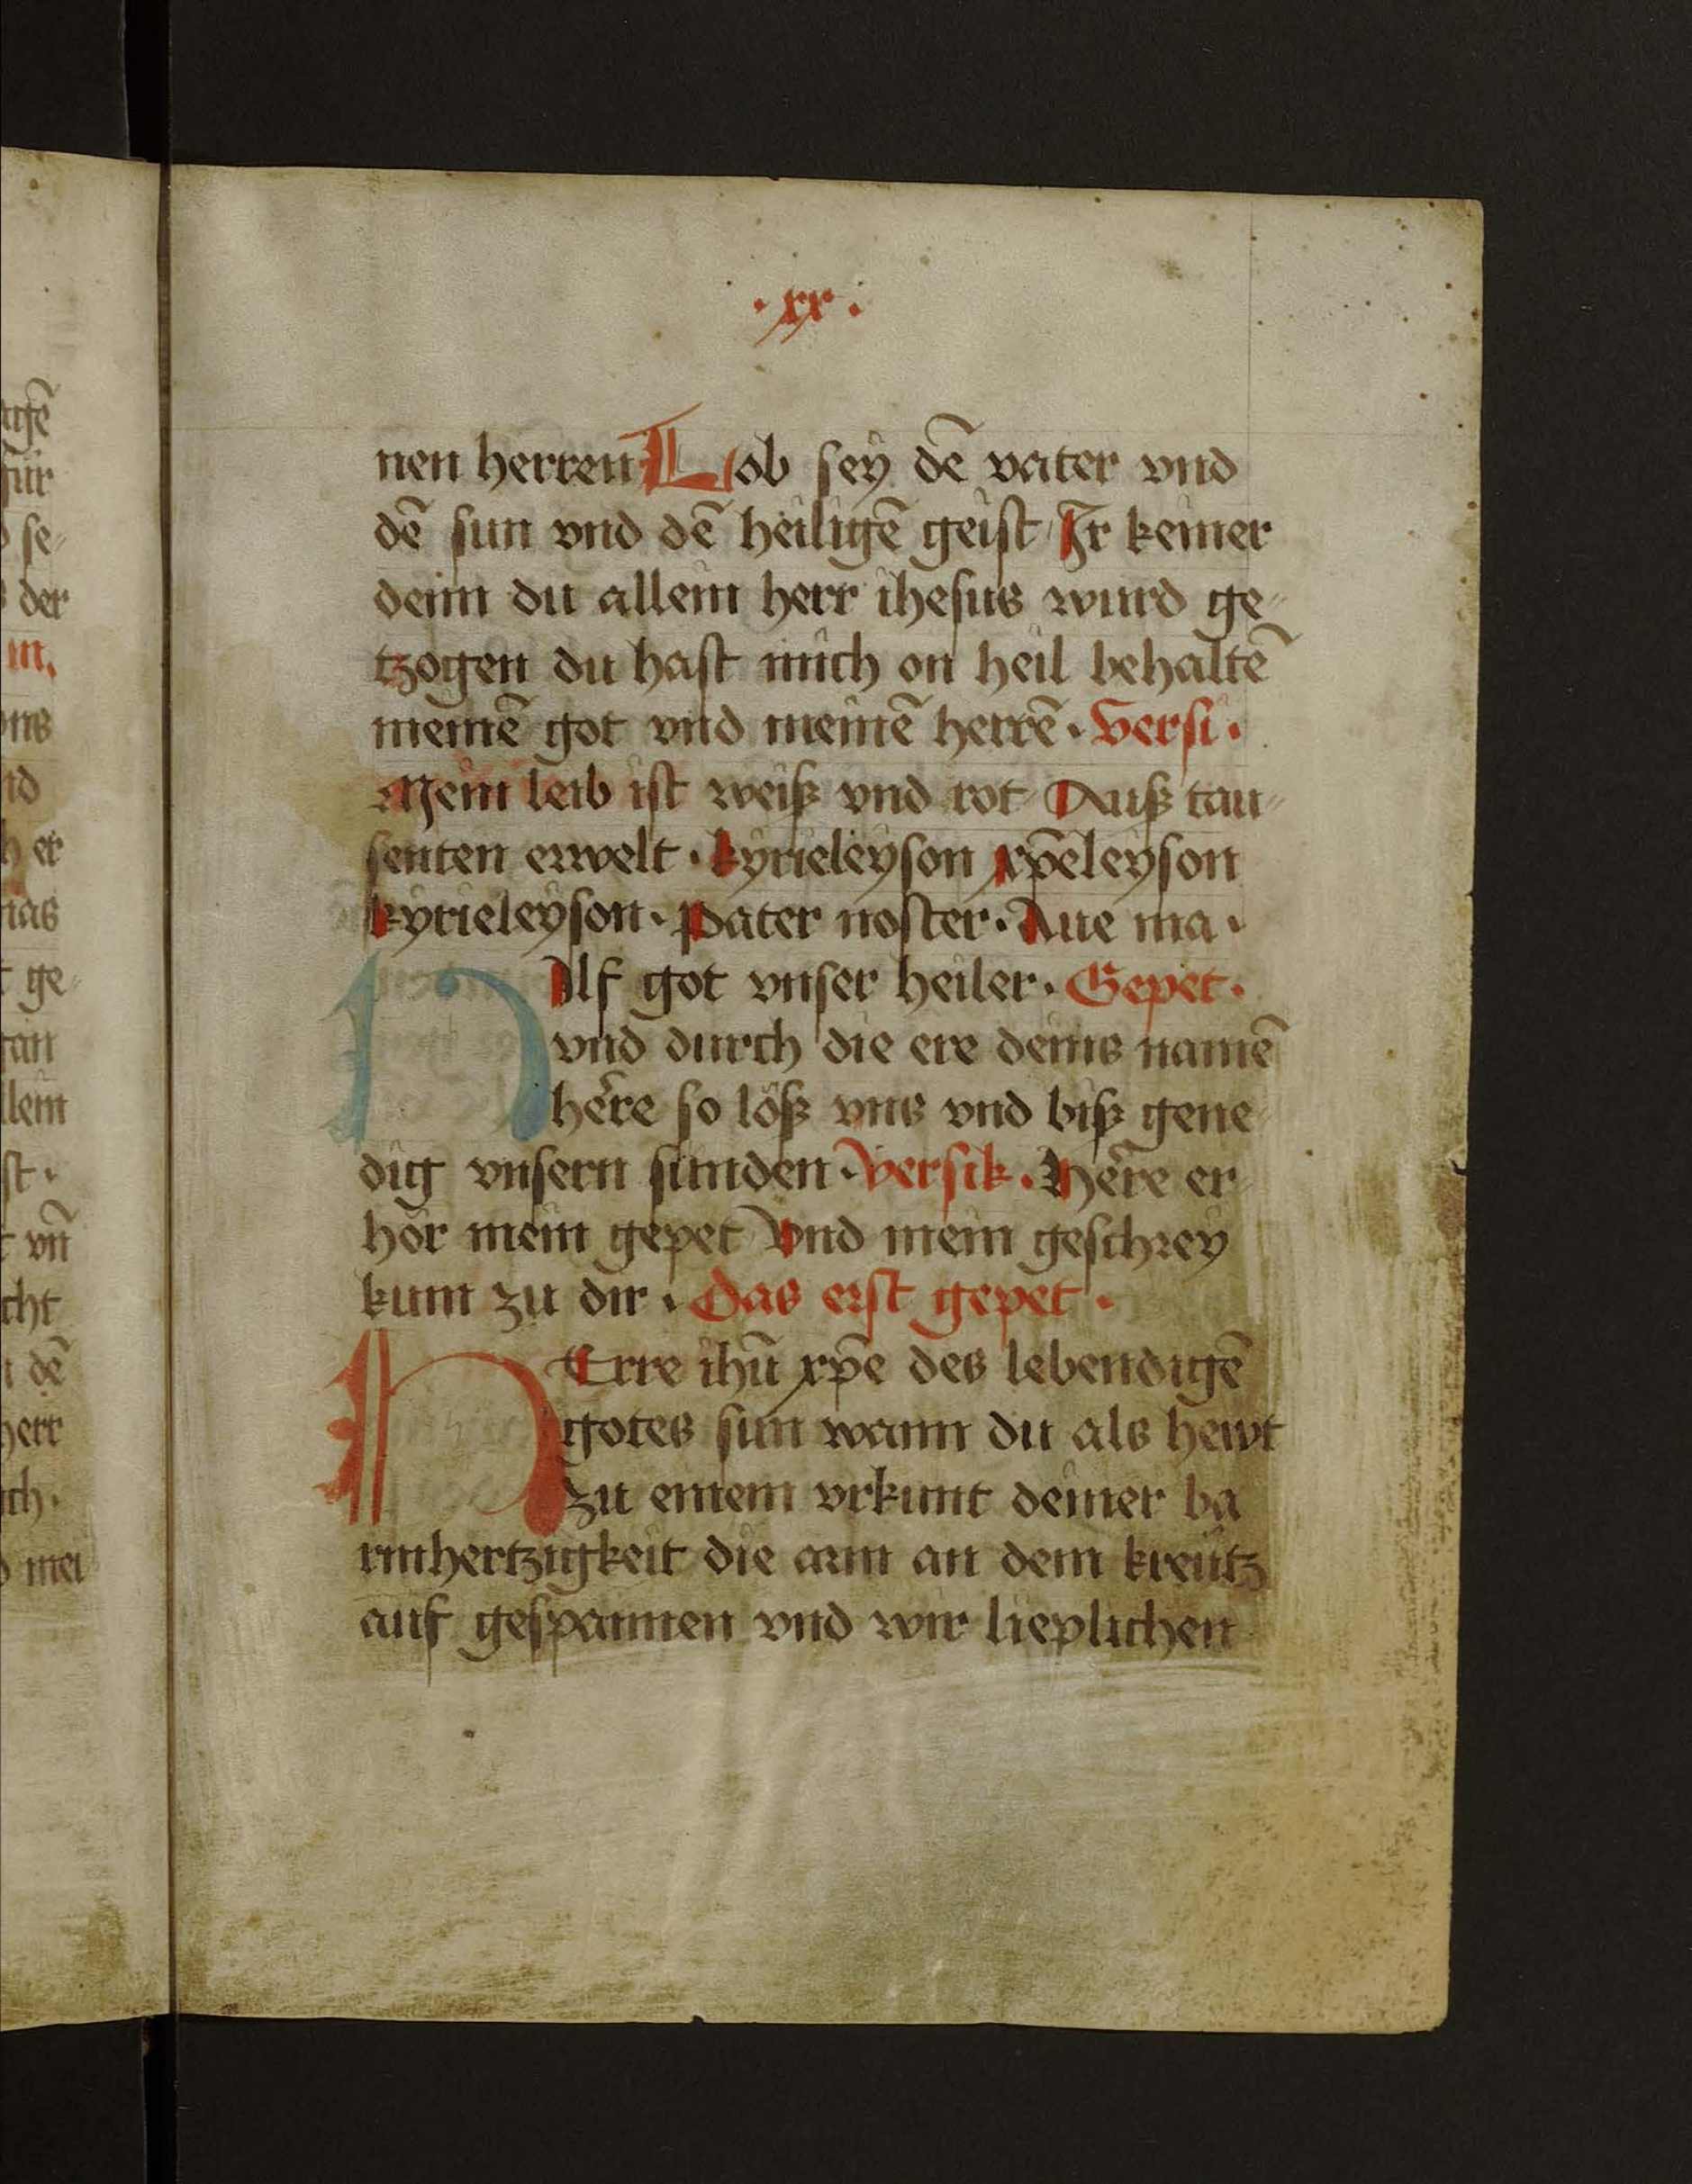 · xx ·
nen herren Lob sey dē vater vnd
dē sun vnd dē heiligē geist Ir keiner
deim du allein herr ihesus wurd ge-
tzogen du hast mich on heil behaltē
meinē got vnd meinē herrē · Versi ·
Mein leib ist weiß vnd rot Auß tau-
senten erwelt · kyrieleyson xp̄eleyson
kyrieleyson · Pater noster · Aue ma ·
HIlf got vnser heiler · Gepet ·
vnd durch die ere deins namē
hēre so löß vns vnd biß gene
dig vnsern sunden · Versik · Hēre er-
hör mein gepet Vnd mein geschrey
kum zu dir · Das erst gepet ·
HErre ihū xp̄e des lebendigē
gotes sun wann du als hewt
zu einem vrkunt deiner ba
rmhertzigkeit die arm an dem kreütz
auf gespannen vnd wir lieplichen